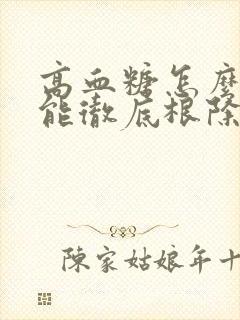 高血糖怎麼
能徹底根除
陳家姑娘年十